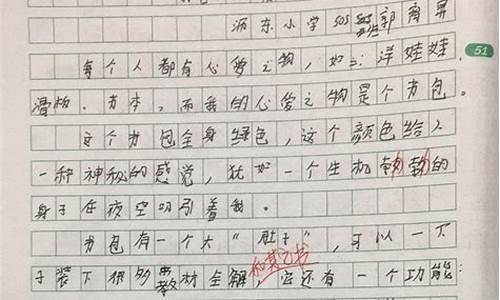 东小学505班郭
每个人都有心爱之物，如：洋娃娃、
51
滑板、书本，而我的心爱之物是个书包。
这个书包全身绿色，这个颜色给人
一种神秘的感觉，犹如一个生机勃勃的
身于在夜空吸引着我。
书包有一个大“肚子”，可以一下
子装下很多教材全解和其它书它还有一个功能